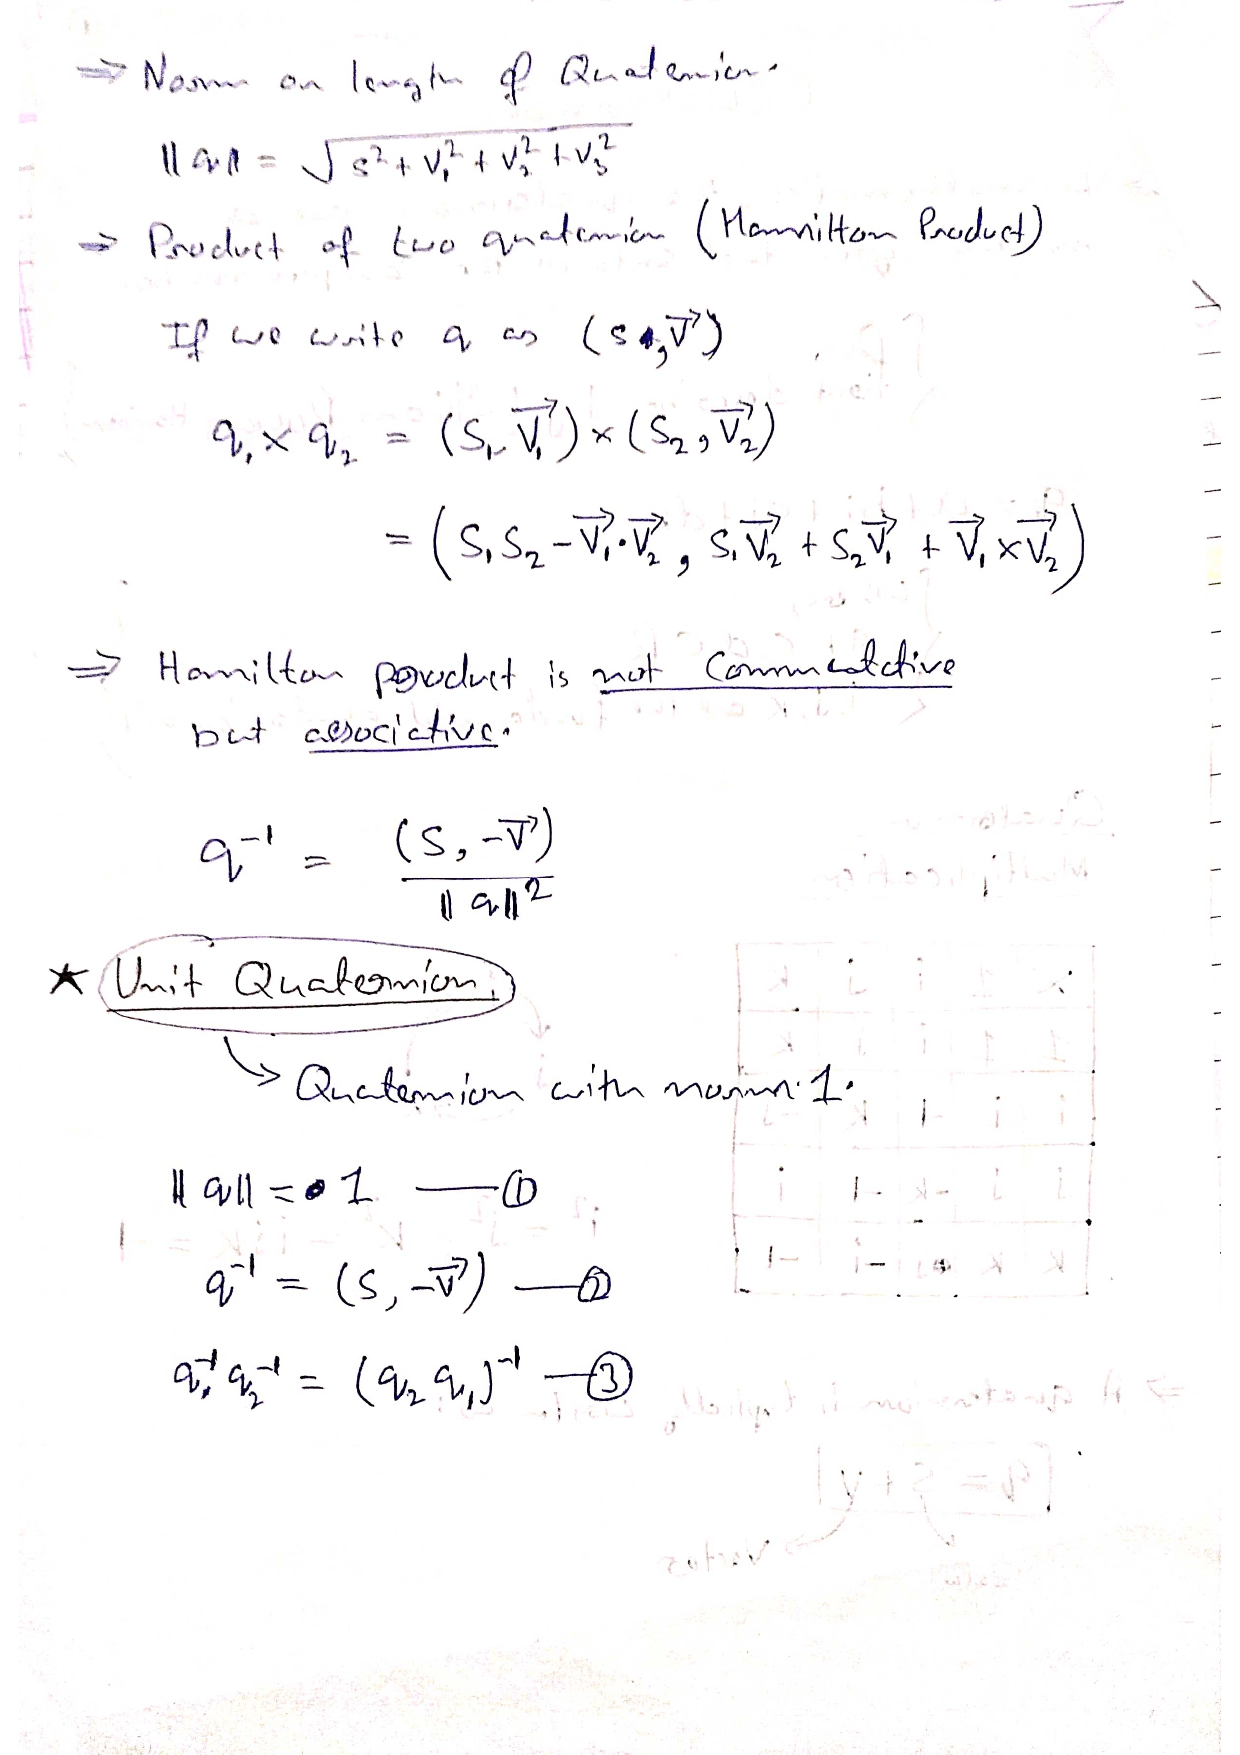 ⇒ Norm or length of Quaternion.
||q|| = √(s² + v₁² + v₂² + v₃²)
⇒ Product of two quaternion (Hamilton Product)
If we write q as (s, v⃗)
q₁ × q₂ = (S₁, V⃗₁) × (S₂, V⃗₂)
= (S₁S₂ - V⃗₁·V⃗₂, S₁V⃗₂ + S₂V⃗₁ + V⃗₁ × V⃗₂)
⇒ Hamilton product is not Commutative
but associative.
q⁻¹ = (S, -V⃗) / ||q||²
★ Unit Quaternion.
↳ Quaternion with norm 1.
||q|| = 1 — ①
q⁻¹ = (S, -V⃗) — ②
q₁⁻¹ q₂⁻¹ = (q₂ q₁)⁻¹ — ③